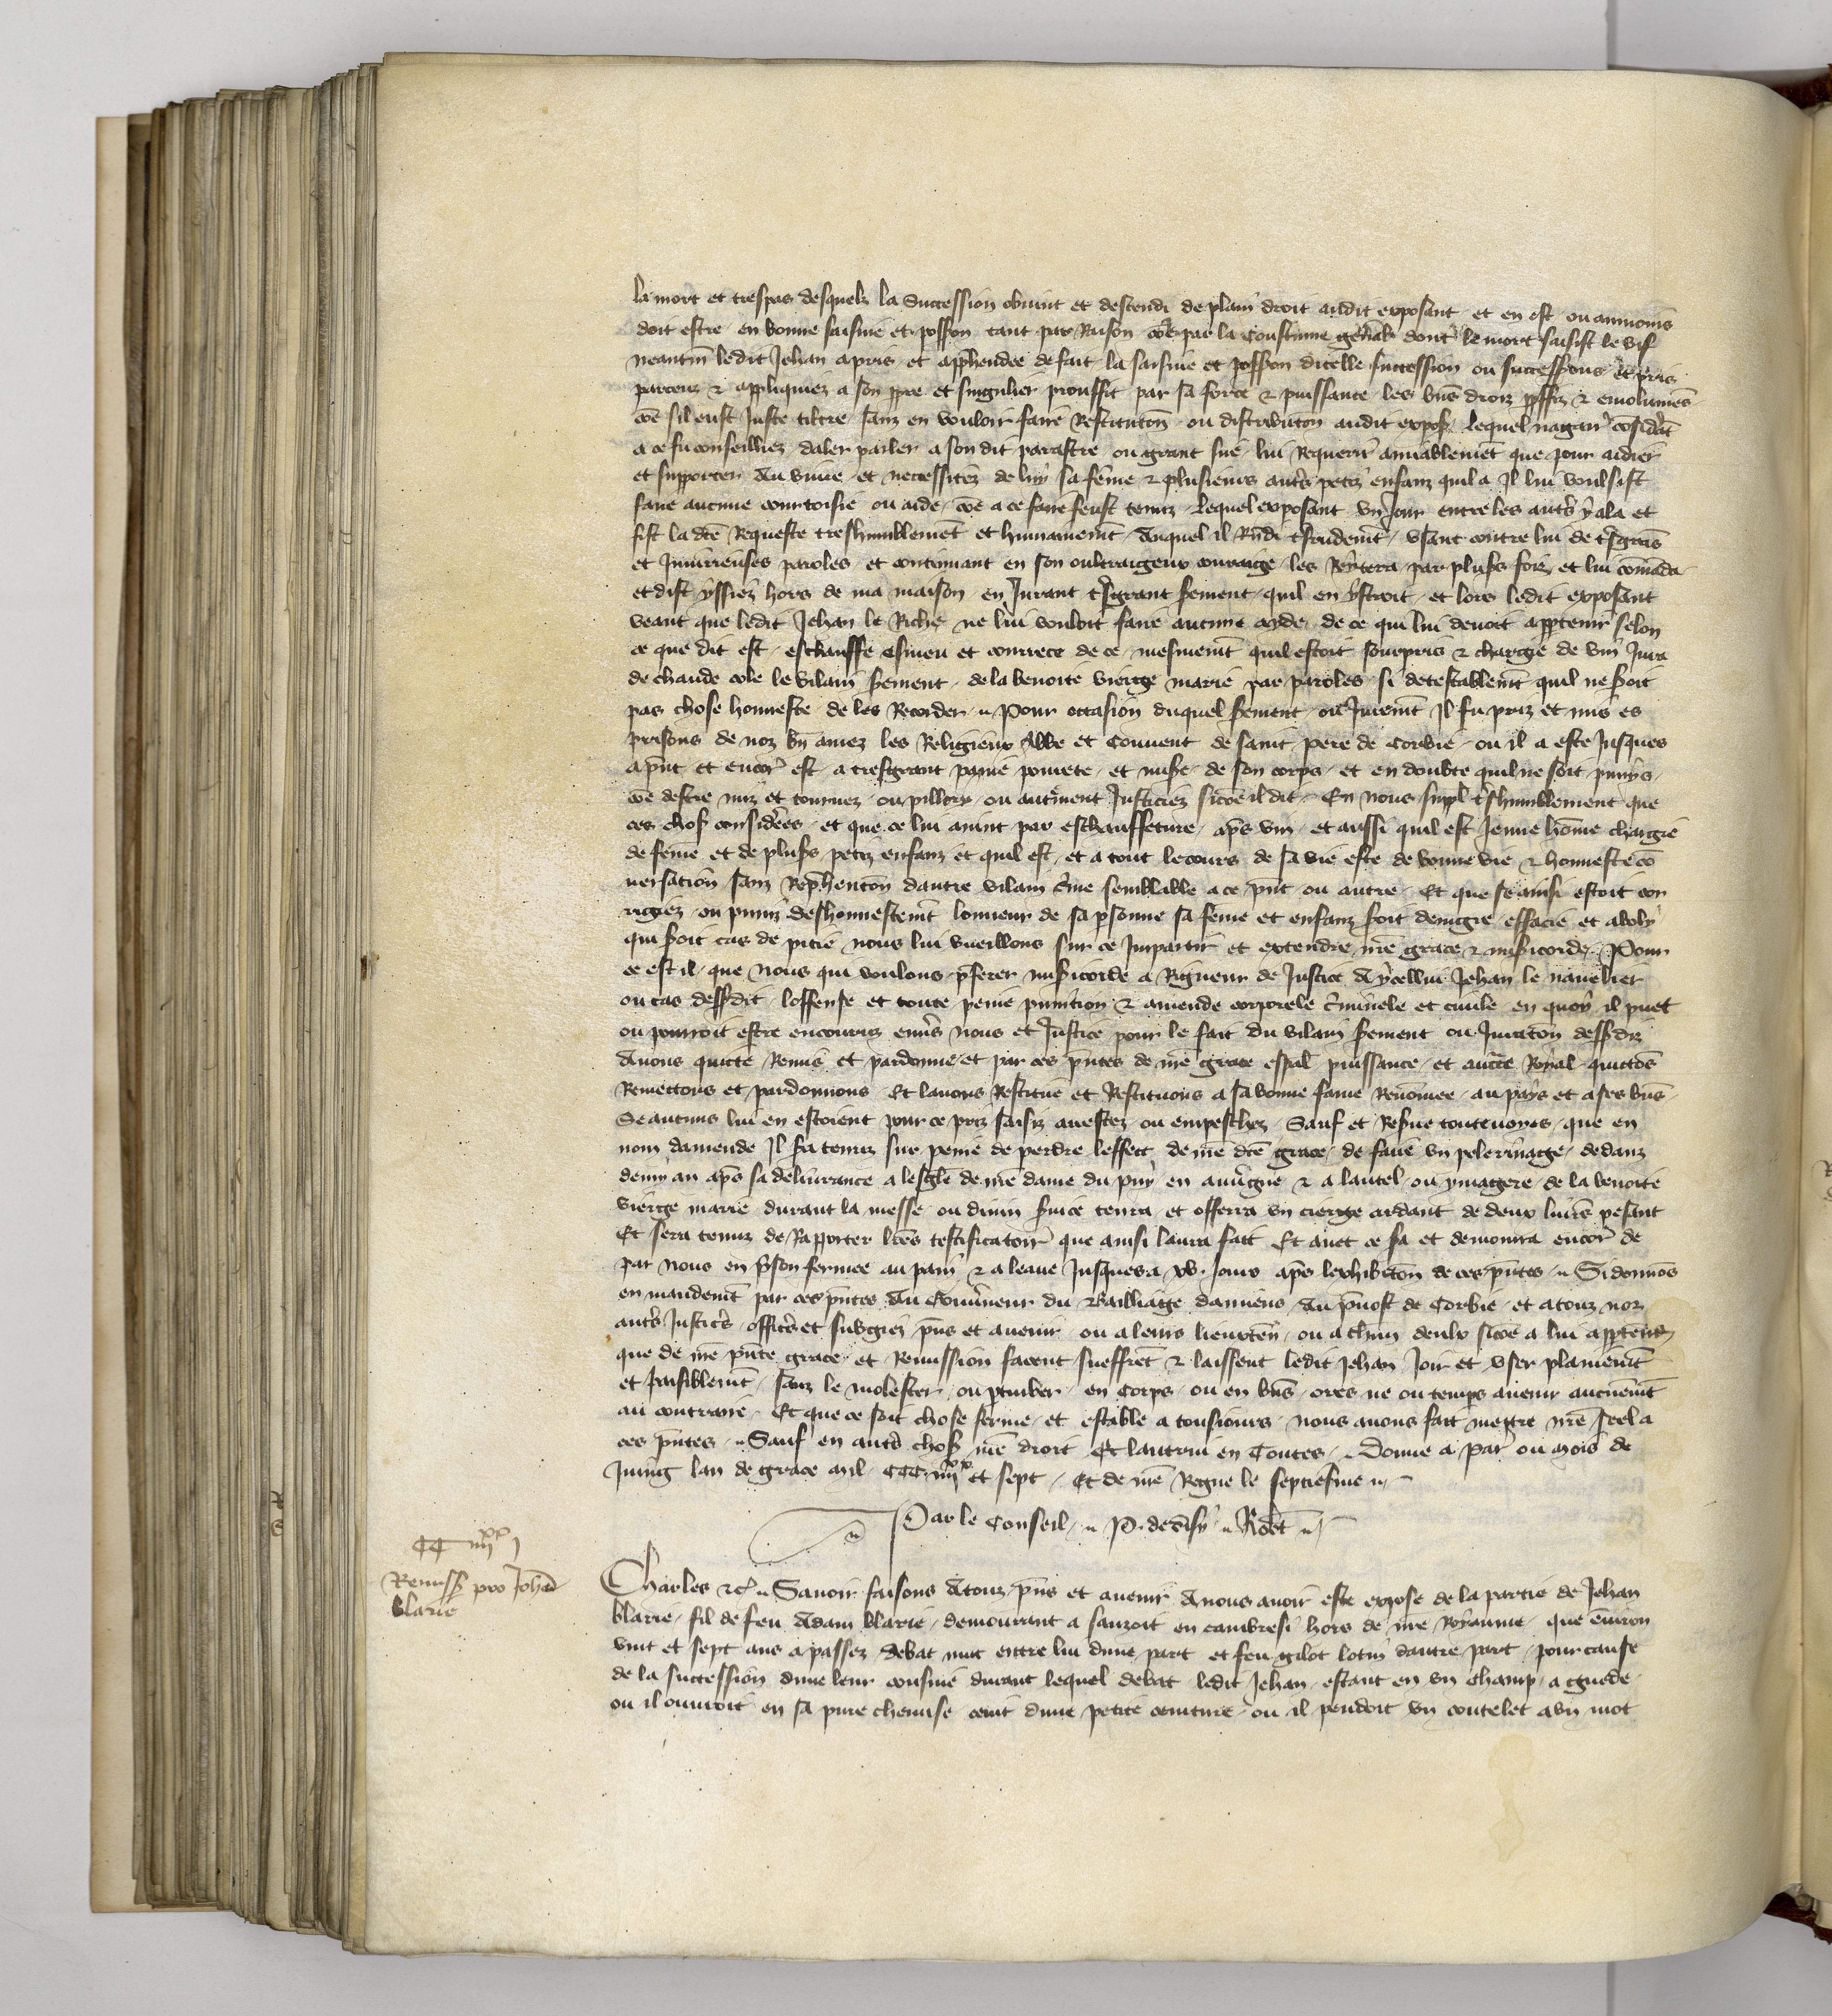 la mort et trespas desquelz la Succession obvint et descendi de plain droit audit exposant et en est ou aumoins
doit estre en bonne saisine et possion tant par Raison coe par la Coustume gñal dont le mort saisist le vif
neantm ledit Jehan a pris et apphendee de fait la saisine et possion dicelle succession ou successions et pris
parceuz & appliquiez a son ppre et singulier prouffit par sa force & puissance les bns droiz pffiz & emolumens
coe sil eust juste tiltre sanz en vouloir faire Restitucon ou distribucon audit expos lequel nagair considat
a ce fu conseilliez daler parler a son dit parastre ou grant sue lui Requerir amiablemet que pour aidier
et supporter du vivre et necessitez de luy sa feme & plusieurs auts petiz enfanz quil a Il lui voulsist
faire aucune courtoisie ou aide coe a ce faire feust tenuz lequel exposant un Jour entre les auts y ala et
fist la dce Requeste treshumblement et humainemt Auquel il Rndi tsrudemt usant contre lui de tsgrans
et Iniurieuses paroles et continuant en son oultraigeux couraige les Reytera par pluss foiz et lui comada
et dist yssiez hors de ma maison en Jurant tsgrant sement quil en ystroit et lors ledit exposant
veant que ledit Jehan le Riche ne lui vouloit faire aucune ayde de ce qui lui devoit apptenir selon
ce que dit est eschauffe esmeu et courrece de ce mesmemt quil estoit sourpris & chargie de vin Jura
de chaude cole le vilain sement de la benoite vierge marie par paroles si detestablemt quil ne soit
pas chose honneste de les Recorder Pour occasion duquel sement ou Juremt Il fu priz et mis es
prisons de noz bn amez les Religieux Abbe et Couvent de saint pere de Corbie ou il a este Jusques
a pnt et encor est a tresgrant paine povrete et mise de son corps et en doubte quil ne soit punys
coe destre miz et tournez ou pillory ou autrment Justiciez sicoe il dit En nous suppl tshumblement que
ces chos considerees et que ce lui avint par eschauffeture aps vin et aussi quil est Jeune home chargie
de feme et de pluss petiz enfanz et quil est et a tout le cours de sa vie este de bonne vie & honneste co
versation sanz Rephencon dautre vilain crime semblable a ce pnt ou autre Et que se ainsi estoit cor
rigiez ou puniz deshonnestemt lonneur de sa psonne sa feme et enfanz soit denigre effacie et aboly
qui soit cas de pitie nous lui vueillons sur ce Impartir et extendre nre grace & misicorde Pour
ce est il que Nous qui voulons pferer misicorde a Rigueur de Justice A ycellui Jehan le navelier
ou cas dessdit loffense et toute peine punicion & amende corporele cminele et civile en quoy il puet
ou pourroit estre encouruz envs nous et Justice pour le fait du vilain sement ou Juracon dessdiz
Avons quitte Remis et pardonne et par ces pntes de nre grace espal puissance et aucte Royal quittos
Remettons et pardonnons Et lavons Restitue et Restituons a sa bonne fame Renomee au pays et a ses bns
Se aucuns lui en estoient pour ce priz saisiz arrestez ou empeschez Sauf et Reserve toutevoyes que en
nom damende Il sa tenuz sur peine de perdre leffect de nre dce grace de faire un pelerinaige dedanz
demy an aps sa delivrance a lesgle de nre dame du puy en auvgne & a lautel ou ymagere de la benoite
vierge marie durant la messe ou divin svice tenra et offerra un cierge ardant de deux livres pesant
Et sera tenuz de Rapporter lres testificatoir que ainsi laura fait Et avec ce sa et demourra encor de
par nous en pson fermee au pain & a leaue Jusques a xv Jours aps lexhibicon de ces pntes Si donnos
en mandemt par ces pntes Au Gouvneur du Bailliaige damiens Au pvost de Corbie et a touz noz
auts Justics offics et subgiez pns et avenir ou a leurs lieuxten ou a chun deulx sicoe a lui apptendr
que de nre pnte grace et Remission facent sueffret & laissent ledit Jehan Joir et user plainemt
et paisiblemt sanz le molester ou ptruber en Corps ou en bns ores ne ou temps avenir aucunemt
au contraire Et que ce soit chose ferme et estable a tousiours nous avons fait mettre nre seel a
ces pntes Sauf en auts chos nre droit Et lautrui en Toutes Donne a Par ou mois de
Juing lan de grace mil CCC iiijxx et sept Et de nre Regne le septiesme
Par le Conseil P. de disy Robt
CC iiijxx j
Remiss pro Johe
blarie
Charles &c Savoir faisons A touz pns et avenir A nous avoir este expose de la partie de Jehan
blarie fil de feu Adam blarie demourant a sauzoit en cambresi hors de nre Royaume que environ
vint et sept ans a passez debat mut entre lui dune part et feu gilot lotin dautre part pour cause
de la succession dune leur cousine durant lequel debat ledit Jehan estant en un champ a guede
ou il ouvroit en sa pure chemise ceint dune petite ceinture ou il pendoit un coutelet a un mot